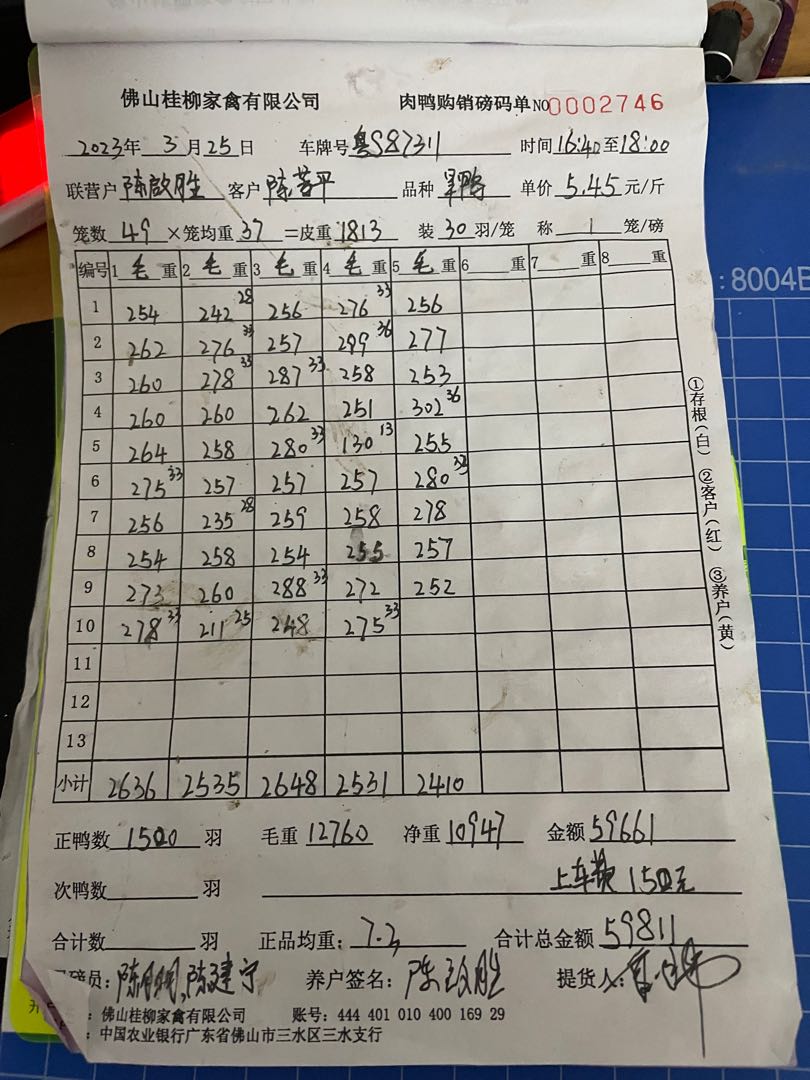 佛山桂柳家禽有限公司 肉鸭购销磅码单 NO 0002746
2023年 3 月 25 日 车牌号 粤S87311 时间 16:40 至 18:00
联营户 陈啟胜 客户 陈若平 品种 单价 5.45 元/斤
笼数 49 ×笼均重 37 =皮重 1813 装 30 羽/笼 称 1 笼/磅
编号 1 毛 重 2 毛 重 3 毛 重 4 毛 重 5 毛 重 6 重 7 重 8 重
1 254 242 28 256 276 33 256
2 262 276 33 257 299 36 277
3 260 278 33 287 33 258 253
4 260 260 262 251 302 36
5 264 258 280 33 130 13 255
6 275 33 257 257 257 280 33
7 256 235 28 259 258 278
8 254 258 254 255 257
9 273 260 288 33 272 252
10 278 33 211 25 248 275 33
11
12
13
小计 2636 2535 2648 2531 2410
正鸭数 1500 羽 毛重 12760 净重 10947 金额 59661
次鸭数 羽 上车款 150元
合计数 羽 正品均重: 7.3 合计总金额 59811
磅员: 陈建宁 养户签名: 陈啟胜 提货人:
: 佛山桂柳家禽有限公司 账号: 444 401 010 400 169 29
: 中国农业银行广东省佛山市三水区三水支行
①存根(白) ②客户(红) ③养户(黄)
:8004E